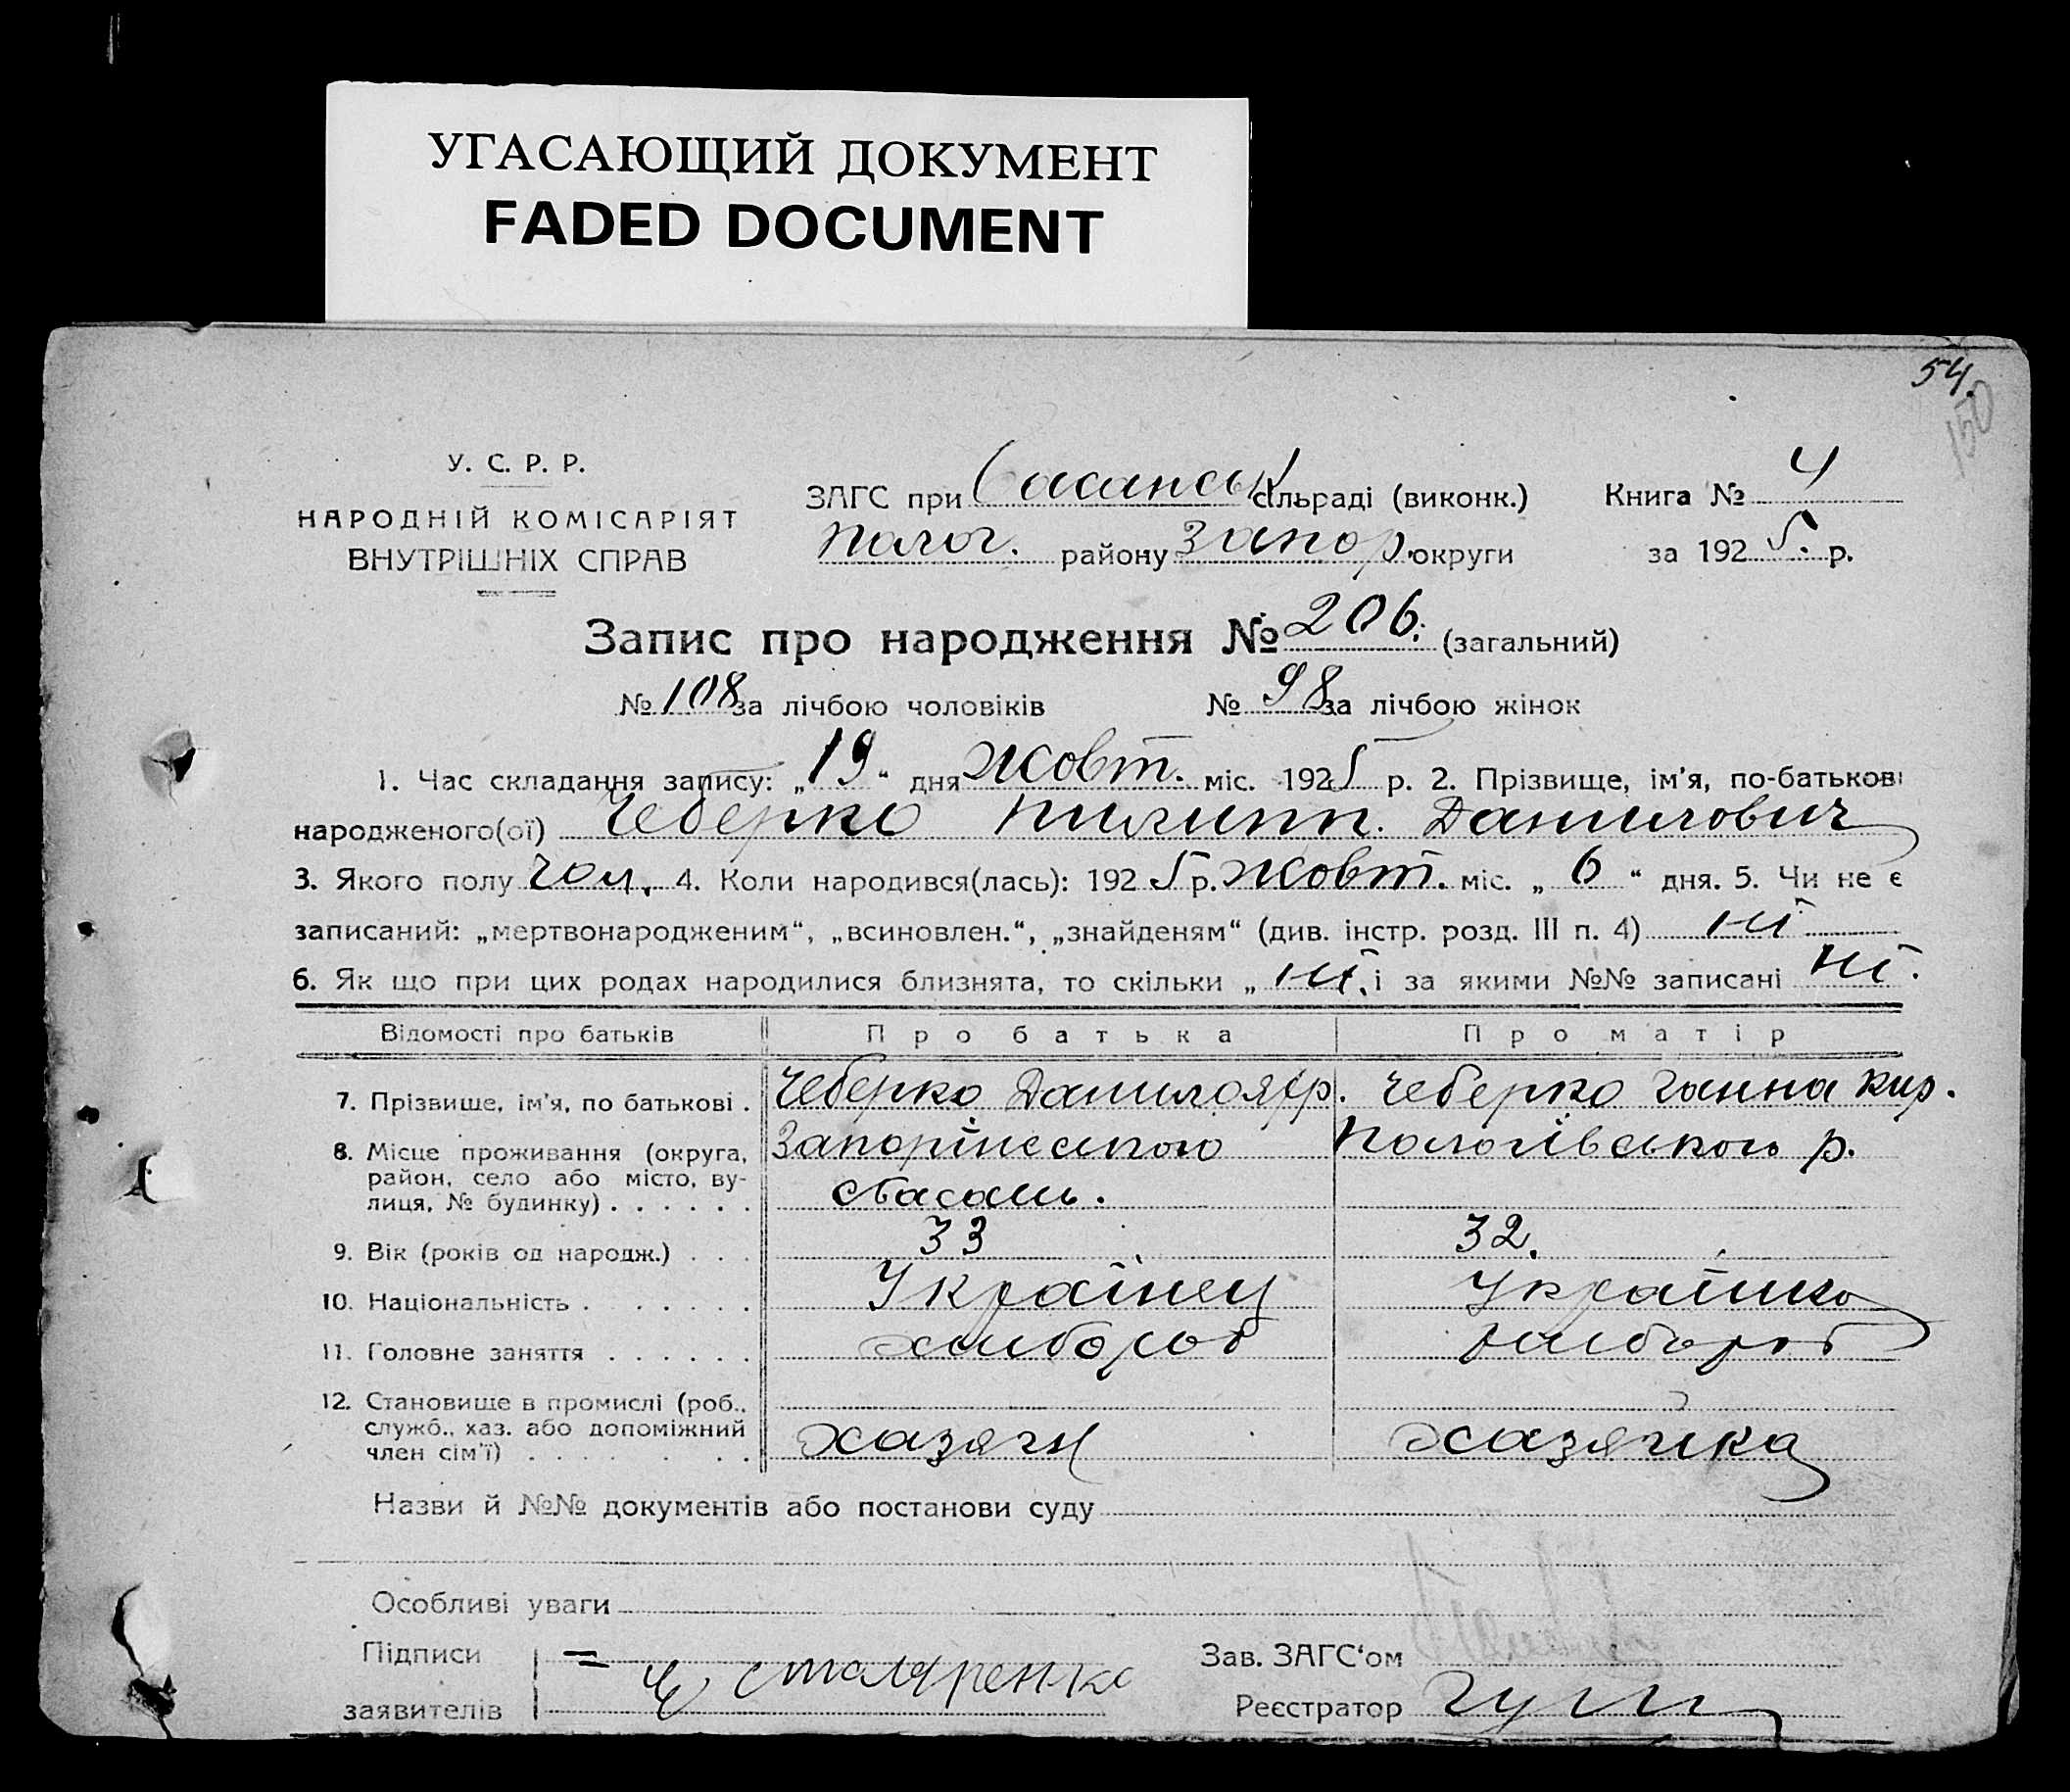 УГАСАЮЩИЙ ДОКУМЕНТ
FADED DOCUMENT
54.
150
У. С. Р. Р.
НАРОДНІЙ КОМІСАРІЯТ
ВНУТРІШНІХ СПРАВ
ЗАГС при Басанськ сільраді (виконк.)
Полог. району Запор. округи
Книга № 4
за 192 5. р.
Запис про народження № 206. (загальний)
№ 108 за лічбою чоловіків № 98 за лічбою жінок
1. Час складання запису: „ 19 “ дня Жовт. міс. 192 5 р. 2. Прізвище, ім'я, по-батькові
народженого(ої) Чеберко Пилипп. Данилович
3. Якого полу чол. 4. Коли народився(лась): 192 5 р. Жовт. міс. „ 6 “ дня. 5. Чи не є
записаний: „мертвонародженим“, „всиновлен.“, „знайденям“ (див. інстр. розд. III п. 4) ні
6. Як що при цих родах народилися близнята, то скільки „ ні, і за якими №№ записані ні.
Відомості про батьків Про батька Про матір
7. Прізвище, ім'я, по батькові . Чеберко Данило Чеберко Ганна Кир.
8. Місце проживання (округа, Запоріжського Пологівського р.
район, село або місто, ву- с Басань.
лиця, № будинку) . . . . . .
9. Вік (років од народж.) . . . 33 32.
10. Національність . . . . . . . Українец Українка
11. Головне заняття . . . . . . хлібороб хлібороб
12. Становище в промислі (роб.,
служб., хаз. або допоміжний хазяін хазяйка
член сім'ї) . . . . . . .
Назви й №№ документів або постанови суду
Особливі уваги
Підписи Зав. ЗАГС'ом
заявителів Столяренко Реєстратор